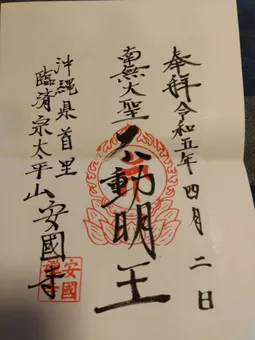 奉拝 令和五年四月二日
南無大聖
不動明王
沖縄県首里
臨済宗太平山安國寺